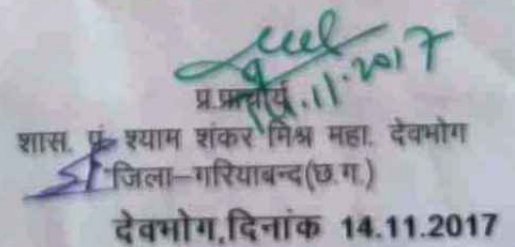 14.11.2017
प्र.प्राचार्य
शास. पं. श्याम शंकर मिश्र महा. देवभोग
जिला-गरियाबन्द(छ.ग.)
देवभोग,दिनांक 14.11.2017